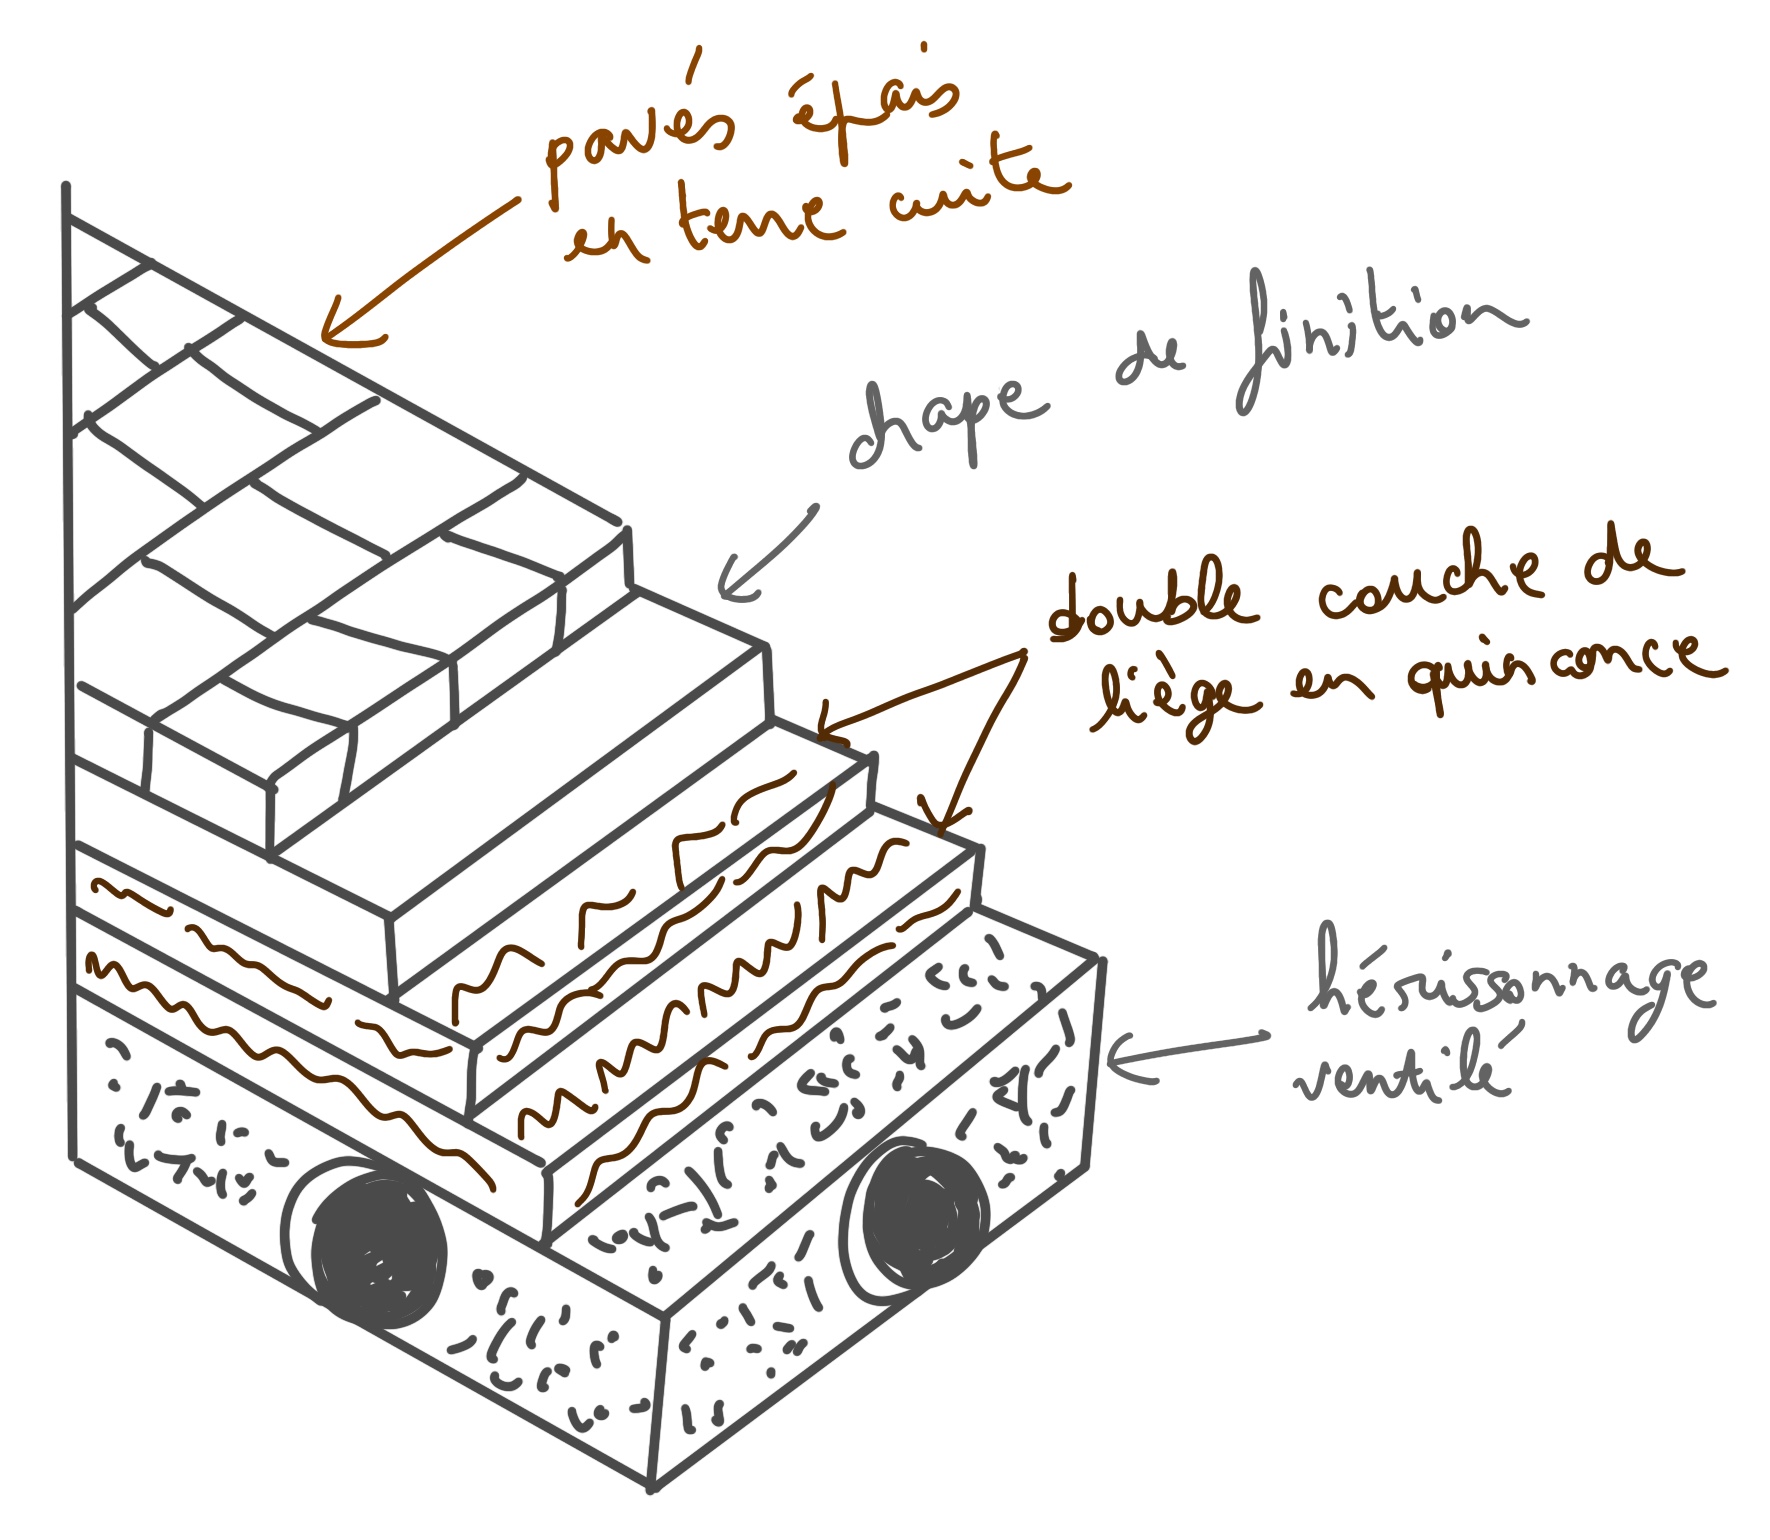 pavés épais
en terre cuite
chape de finition
double couche de
liège en quinconce
hérissonnage
ventilé